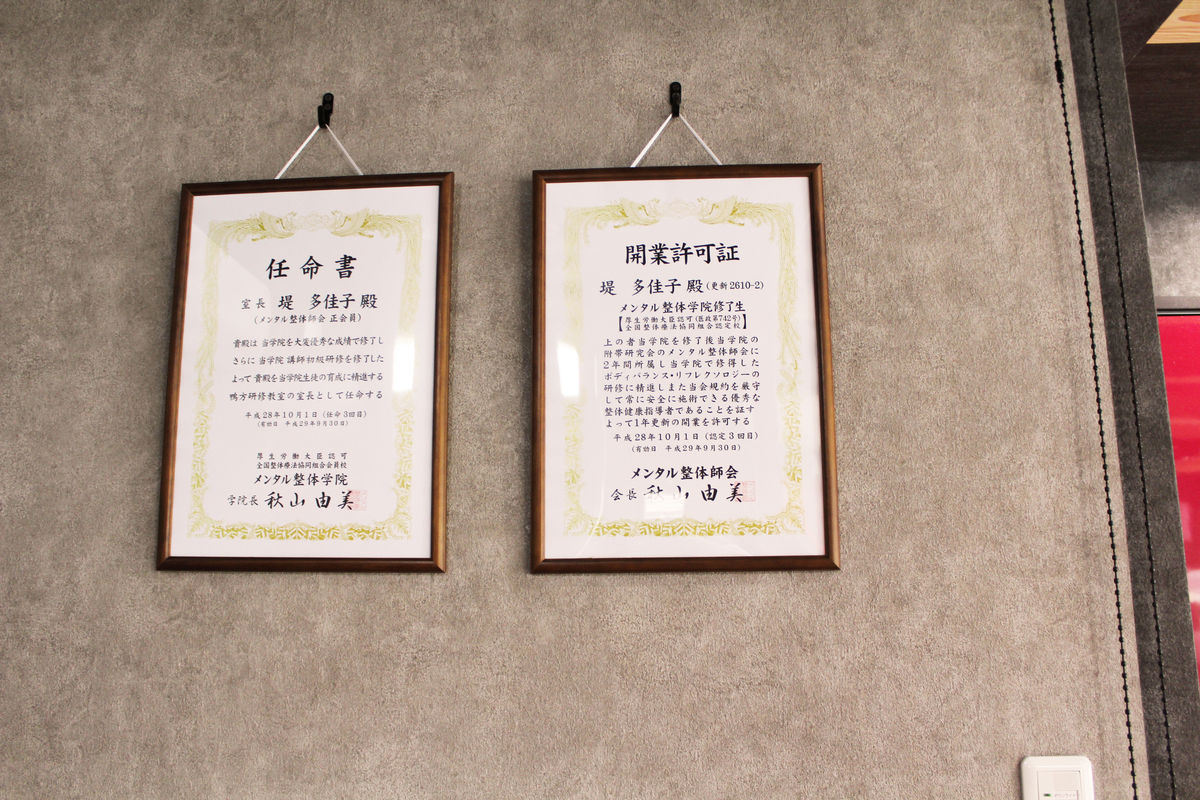 任命書
室長 堤 多佳子 殿
(メンタル整体師会 正会員)
貴殿は 当学院を大変優秀な成績で修了し
さらに 当学院 講師初級研修を修了した
よって 貴殿を当学院生徒の育成に精進する
鴨方研修教室の室長として任命する
平成28年10月1日(任命3回目)
(有効日 平成29年9月30日)
厚生労働大臣認可
全国整体療法協同組合会員校
メンタル整体学院
学院長 秋山由美
開業許可証
堤 多佳子 殿(更新2610-2)
メンタル整体学院修了生
【厚生労働大臣認可(医政第742号)
全国整体療法協同組合認定校】
上の者当学院を修了後当学院の
附帯研究会のメンタル整体師会に
2年間所属し当学院で修得した
ボディバランス・リフレクソロジーの
研修に精進しまた当会規約を厳守
して常に安全に施術できる優秀な
整体健康指導者であることを証す
よって1年更新の開業を許可する
平成28年10月1日(認定3回目)
(有効日 平成29年9月30日)
メンタル整体師会
会長 秋山由美